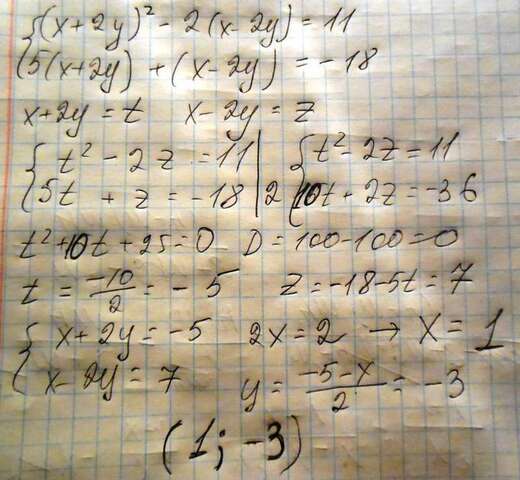 {(x+2y)² - 2(x-2y) = 11
{5(x+2y) + (x-2y) = -18
x+2y = t   x-2y = z
{t² - 2z = 11 | {t² - 2z = 11
{5t + z = -18 | 2 {10t + 2z = -36
t² + 10t + 25 = 0   D = 100 - 100 = 0
t = -10/2 = -5   z = -18 - 5t = 7
{x + 2y = -5   2x = 2 → x = 1
{x - 2y = 7   y = (-5-x)/2 = -3
(1; -3)